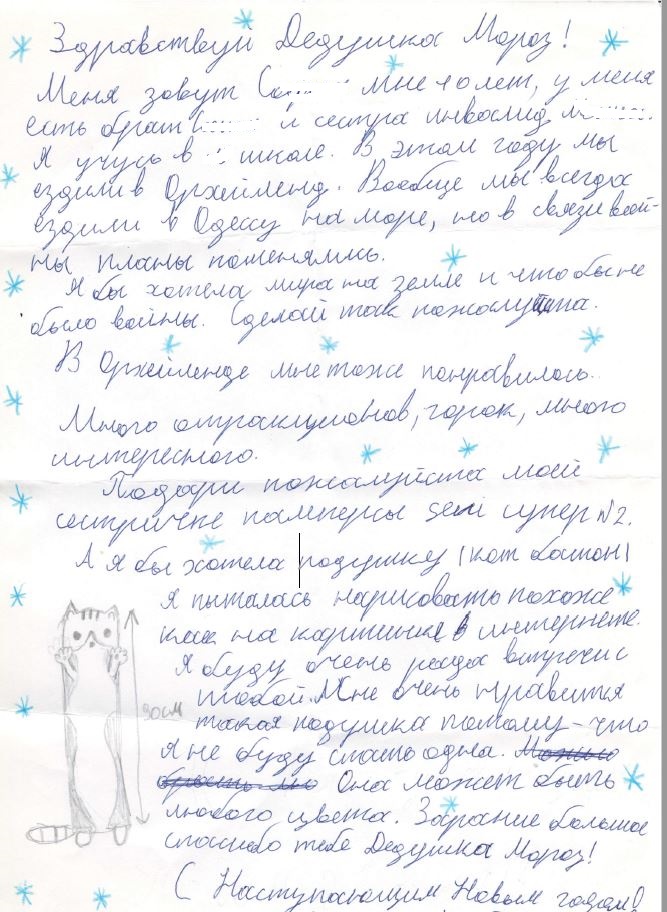 Здравствуй Дедушка Мороз!
Меня зовут Со мне 10 лет, у меня
есть брат и сестра инвалид
Я учусь в школе. В этом году мы
ездили в Орхейленд. Вообще мы всегда
ездили в Одессу на море, но в связи вой-
ны планы поменялись.
Я бы хотела мира на земле и что бы не
было войны. Сделай так пожалуйста.
В Орхейленде мне тоже понравилось.
Много атракционов, горок, много
интересного.
Подари пожалуйста моей
сестричке памперсы seni супер N2.
А я бы хотела подушку (кот батон)
я пыталась нарисовать похоже
как на картинке в интернете.
Я буду очень рада встречи с
тобой. Мне очень нравится
30см
такая подушка потому-что
я не буду спать одна.
Она может быть
любого цвета. Зарание большое
спасибо тебе Дедушка Мороз!
С Наступающим Новым годом!